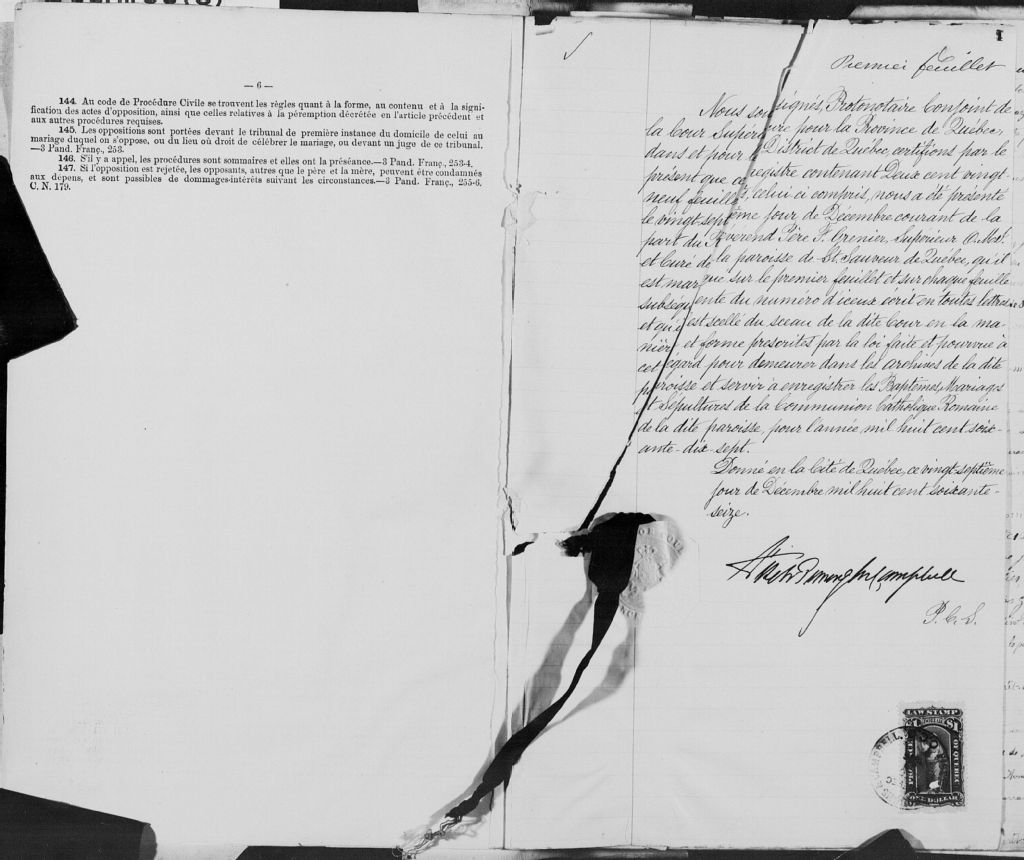 — 6 —
144. Au code de Procédure Civile se trouvent les règles quant à la forme, au contenu et à la signi-
fication des actes d'opposition, ainsi que celles relatives à la péremption décrétée en l'article précédent et
aux autres procédures requises.
145. Les oppositions sont portées devant le tribunal de première instance du domicile de celui au
mariage duquel on s'oppose, ou du lieu où droit de célébrer le mariage, ou devant un juge de ce tribunal.
—3 Pand. Franç., 253.
146. S'il y a appel, les procédures sont sommaires et elles ont la préséance.—3 Pand. Franç., 253-4.
147. Si l'opposition est rejetée, les opposants, autres que le père et la mère, peuvent être condamnés
aux dépens, et sont passibles de dommages-intérêts suivant les circonstances.—3 Pand. Franç., 255-6.
C. N. 179.
1
Premier feuillet
Nous soussignés, Protonotaire Conjoint de
la Cour Supérieure pour la Province de Québec,
dans et pour le District de Québec, certifions par le
présent que ce registre contenant Deux cent vingt-
neuf feuillets, celui ci compris, nous a été présenté
le vingt septième jour de Décembre courant de la
part du Réverend Père F. Grenier, Supérieur O.M.I.
et Curé de la paroisse de St. Sauveur de Québec, qu'il
est marqué sur le premier feuillet et sur chaque feuille
subséquente du numéro d'iceux écrit en toutes lettres
et qu'il est scellé du sceau de la dite Cour en la ma-
nière et forme prescrites par la loi faite et pourvue à
cet égard pour demeurer dans les archives de la dite
paroisse et servir à enregistrer les Baptêmes, Mariages
et Sépultures de la Communion Catholique Romaine
de la dite paroisse, pour l'année mil huit cent soix-
ante-dix-sept.
Donné en la Cité de Québec, ce vingt-septième
jour de Décembre mil huit cent soixante-
seize.
Campbell
P. C. S.
LAW STAMP
$1 $1
PROVINCE OF QUEBEC
ONE DOLLAR